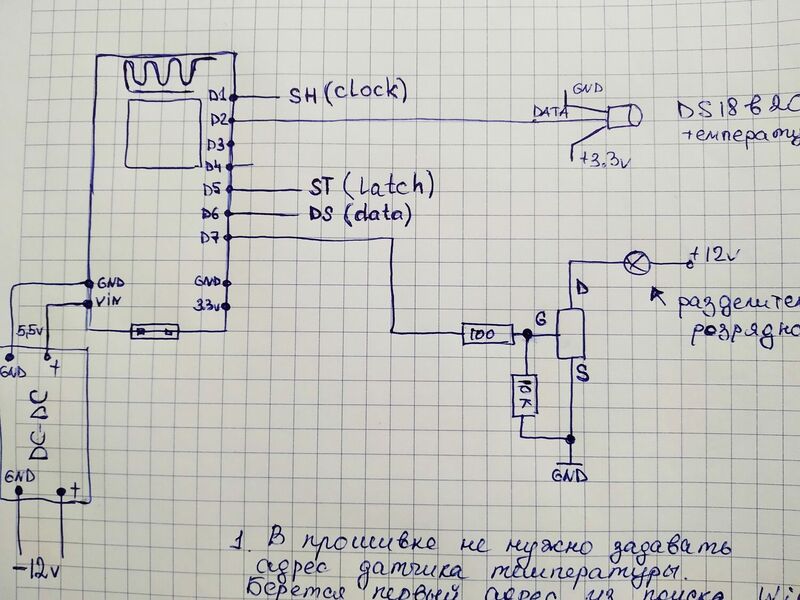 D1
SH (clock)
D2
D3
D4
D5
ST (Latch)
D6
DS (data)
D7
GND
DATA
+3,3v
DS18B20
GND
Vin
GND
3.3v
5,5v
GND
+
DC-DC
GND
+
12v
100
10K
G
D
S
GND
+12v
1. В прошивке не нужно задавать
адрес датчика температуры.
Берется первый адрес из поиска